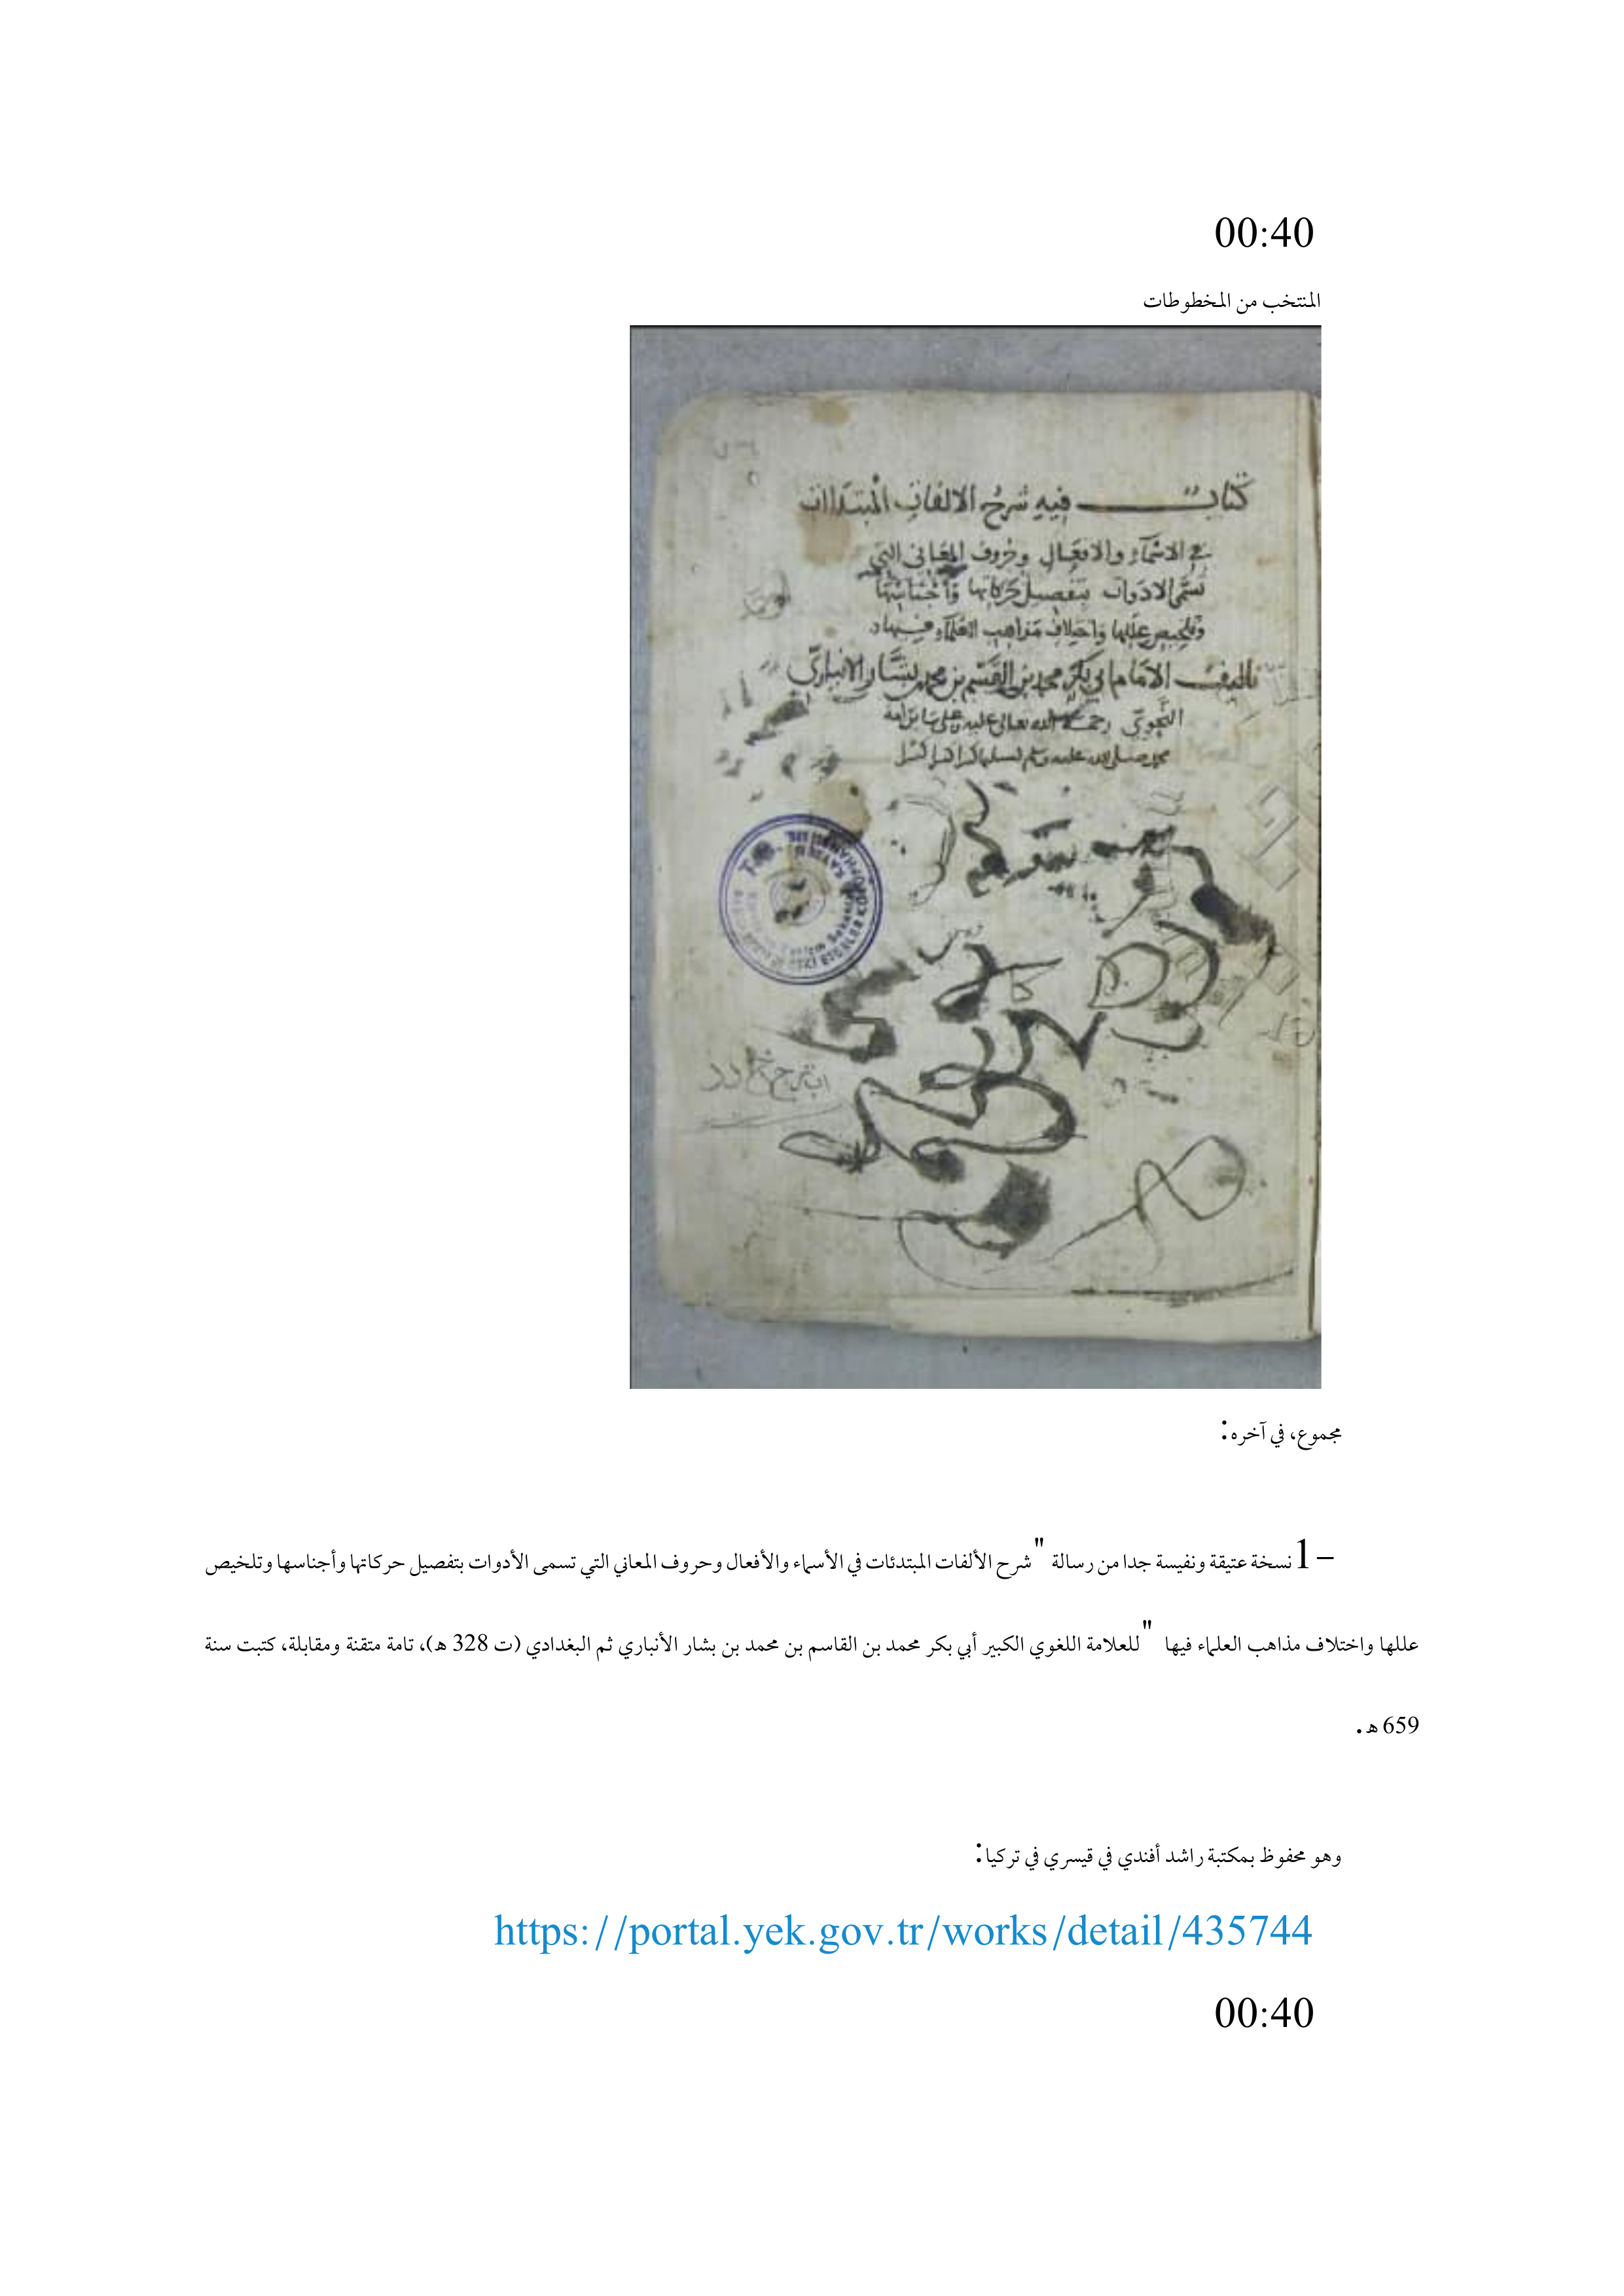 00:40
المنتخب من المخطوطات
كتاب فيه شرح الالفات المبتدات
في الاسماء والافعال وحروف المعاني التي
تسمى الادوات بتفصيل حركاتها واجناسها
وتلخيص عللها واختلاف مذاهب العلماء فيها
تاليف الامام ابي بكر محمد بن القسم بن محمد بن بشار الانباري
النحوي رحمة الله تعالى عليه
محمد صلى الله عليه وسلم تسليما كثيرا كثيرا
مجموع، في آخره:
1- نسخة عتيقة ونفيسة جدا من رسالة "شرح الألفات المبتدئات في الأسماء والأفعال وحروف المعاني التي تسمى الأدوات بتفصيل حركاتها وأجناسها وتلخيص
عللها واختلاف مذاهب العلماء فيها" للعلامة اللغوي الكبير أبي بكر محمد بن القاسم بن محمد بن بشار الأنباري ثم البغدادي (ت 328 هـ)، تامة متقنة ومقابلة، كتبت سنة
659 هـ.
وهو محفوظ بمكتبة راشد أفندي في قيسري في تركيا:
https://portal.yek.gov.tr/works/detail/435744
00:40